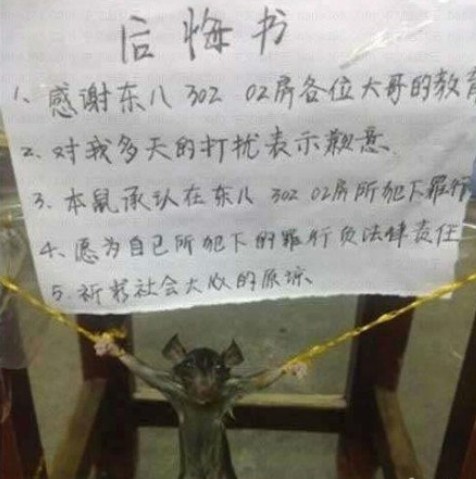 后悔书
1、感谢东八 302 02房各位大哥的教育
2、对我多天的打扰表示歉意、
3、本鼠承认在东八 302 02房所犯下罪行
4、愿为自己所犯下的罪行负法律责任
5、祈求社会大众的原谅、